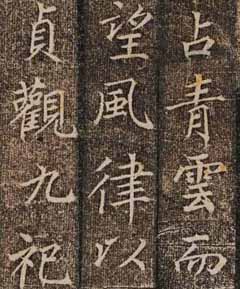 占青雲而
望風律以
貞觀九祀